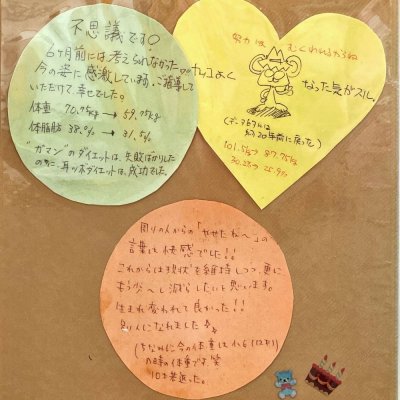 不思議です!
6ヶ月前には考えられなかった
今の姿に感激しています。ご指導して
いただけて、幸せでした。
体重 70.75kg → 59.75kg
体脂肪 38.0% → 31.5%
"ガマン"のダイエットは、失敗ばかりした
のに、耳ツボダイエットは、成功でした。
努力は むくわれるからね
なった気がスル。
(データ的には
約20年前に戻った)
101.5kg→ 87.75kg
周りの人からの「やせたね〜」の
言葉は快感でした!!
これからは現状を維持しつつ、更に
もう少〜し減らしたいと思います。
生まれ変われて良かった!!
別人になれました
(ちなみに今の体重は
の時の体重です。笑
10才若返った。